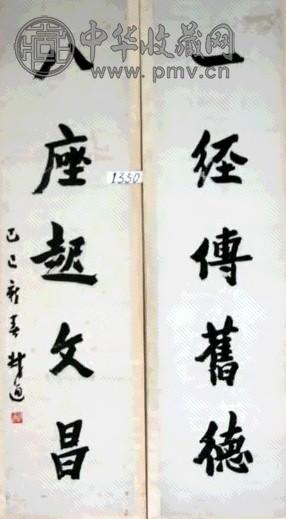 中华收藏网
www.pmv.cn
一經傳舊德
八座起文昌
1350
己巳新春